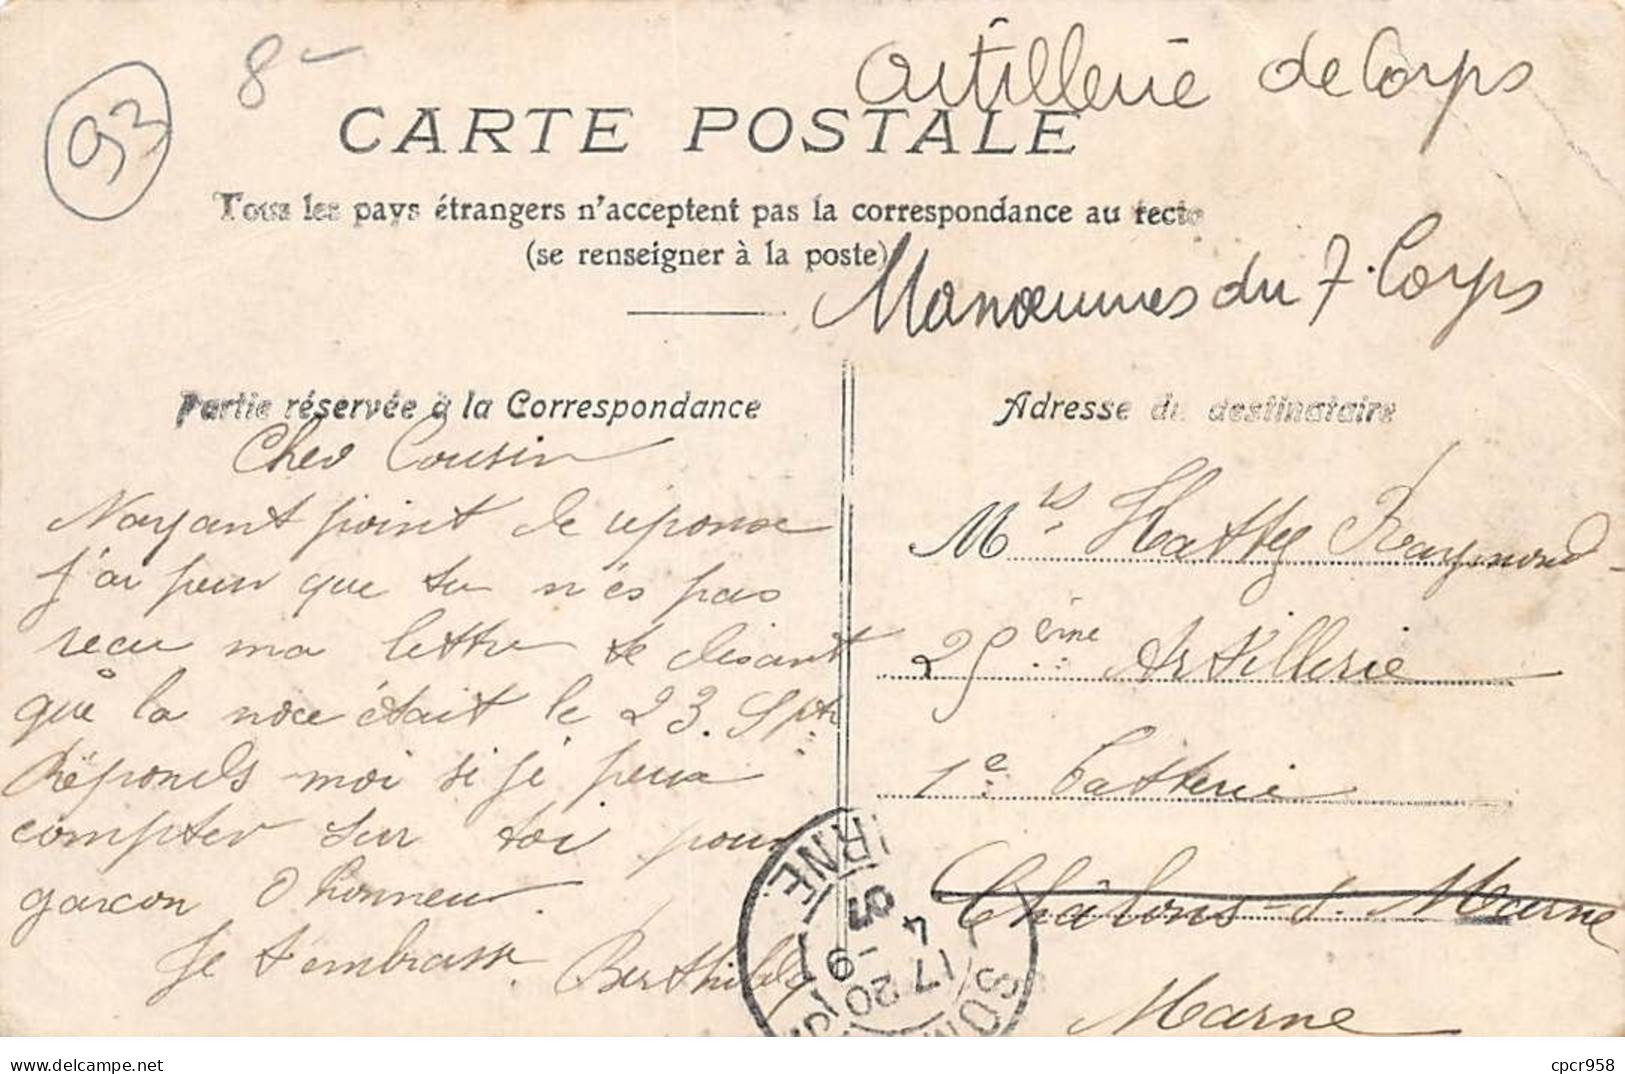 93
8-
Artillerie de Corps
CARTE POSTALE
Tous les pays étrangers n'acceptent pas la correspondance au recto
(se renseigner à la poste)
Manœuvres du 7. Corps
Partie réservée à la Correspondance
Cher Cousin
N'ayant point de réponse
j'ai peur que tu n'es pas
recu ma lettre te disant
que la noce était le 23. Spt
Réponds moi si je peux
compter sur toi pour
garçon d honneur.
Je t'embrasse. Berthilde
Adresse du destinataire
Mrs Hatty Raymond
25ème Artillerie
1e batterie
Châlons-s. Marne
Marne
17 20
4 -9
07
cpcr958